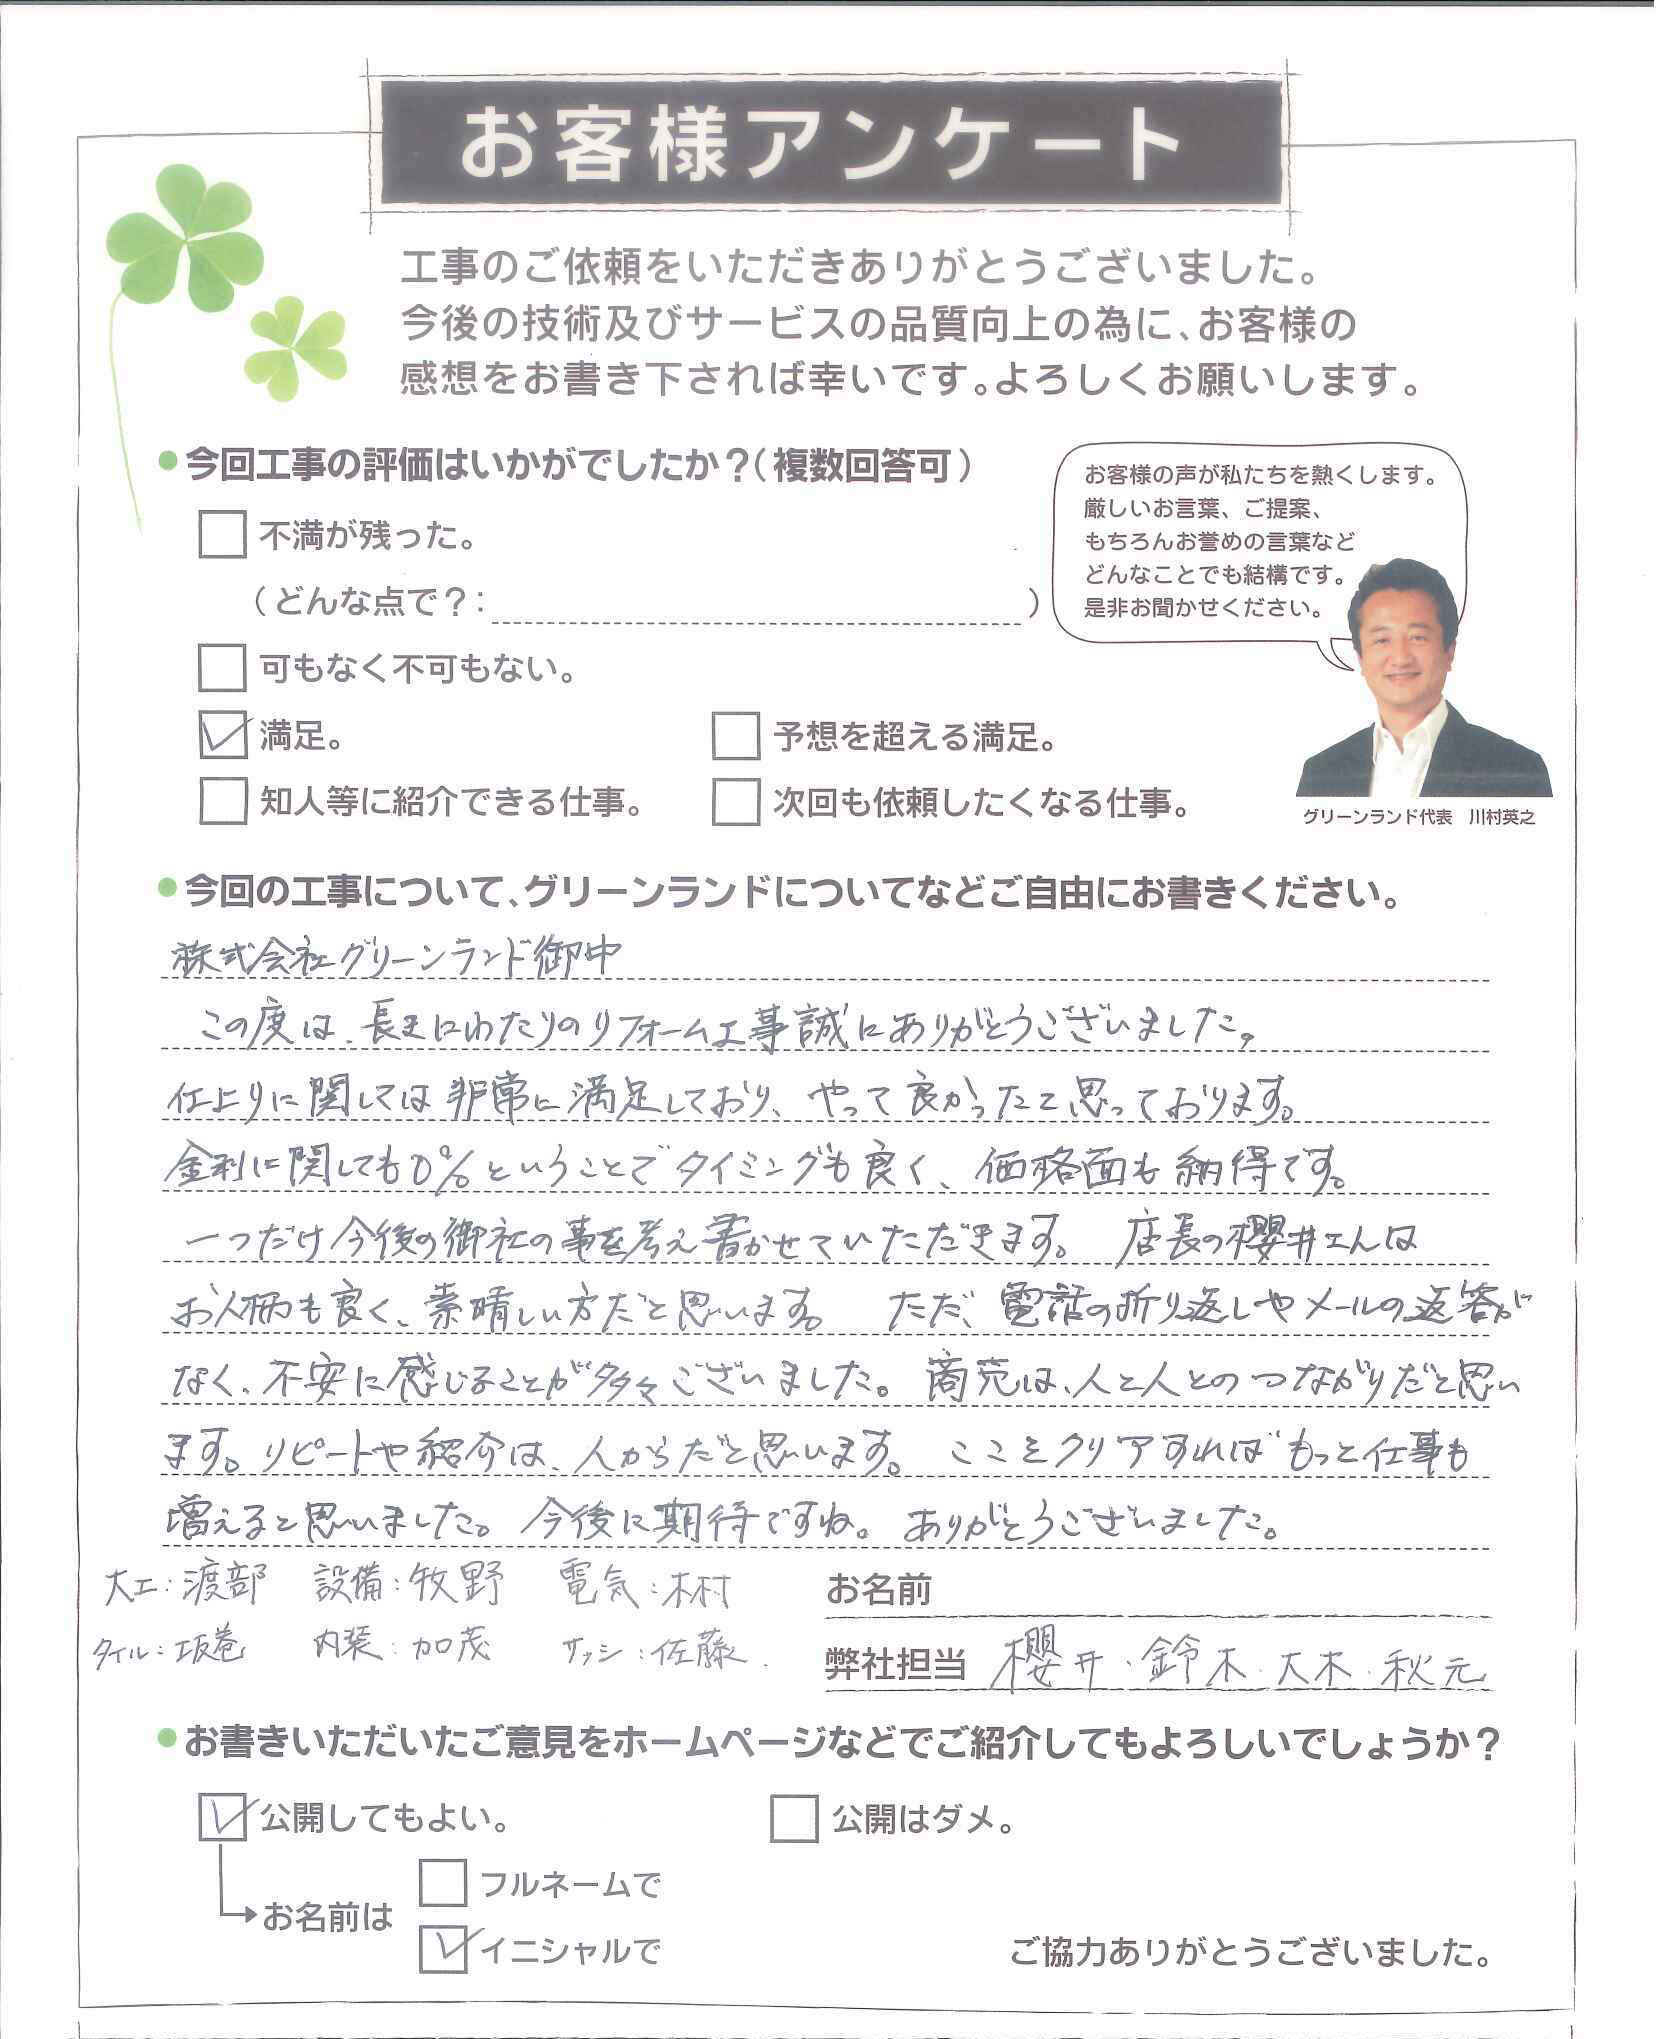 お客様アンケート
工事のご依頼をいただきありがとうございました。
今後の技術及びサービスの品質向上の為に、お客様の
感想をお書き下されば幸いです。よろしくお願いします。
●今回工事の評価はいかがでしたか?(複数回答可)
不満が残った。
(どんな点で?: )
可もなく不可もない。
満足。 予想を超える満足。
知人等に紹介できる仕事。 次回も依頼したくなる仕事。
お客様の声が私たちを熱くします。
厳しいお言葉、ご提案、
もちろんお誉めの言葉など
どんなことでも結構です。
是非お聞かせください。
グリーンランド代表 川村英之
●今回の工事について、グリーンランドについてなどご自由にお書きください。
株式会社グリーンランド御中
この度は、長きにわたりのリフォーム工事誠にありがとうございました。
仕上りに関しては非常に満足しており、やって良かったと思っております。
金利に関しても0%ということでタイミングも良く、価格面も納得です。
一つだけ今後の御社の事を考え書かせていただきます。 店長の櫻井さんは
お人柄も良く、素晴しい方だと思います。 ただ、電話の折り返しやメールの返答が
なく、不安に感じることが多々ございました。商売は、人と人とのつながりだと思い
ます。リピートや紹介は、人からだと思います。 ここをクリアすればもっと仕事も
増えると思いました。今後に期待ですね。ありがとうございました。
大工:渡部 設備:牧野 電気:木村
タイル:坂巻 内装:加茂 サッシ:佐藤
お名前
弊社担当 櫻井・鈴木・大木・秋元
●お書きいただいたご意見をホームページなどでご紹介してもよろしいでしょうか?
公開してもよい。 公開はダメ。
お名前は
フルネームで
イニシャルで
ご協力ありがとうございました。